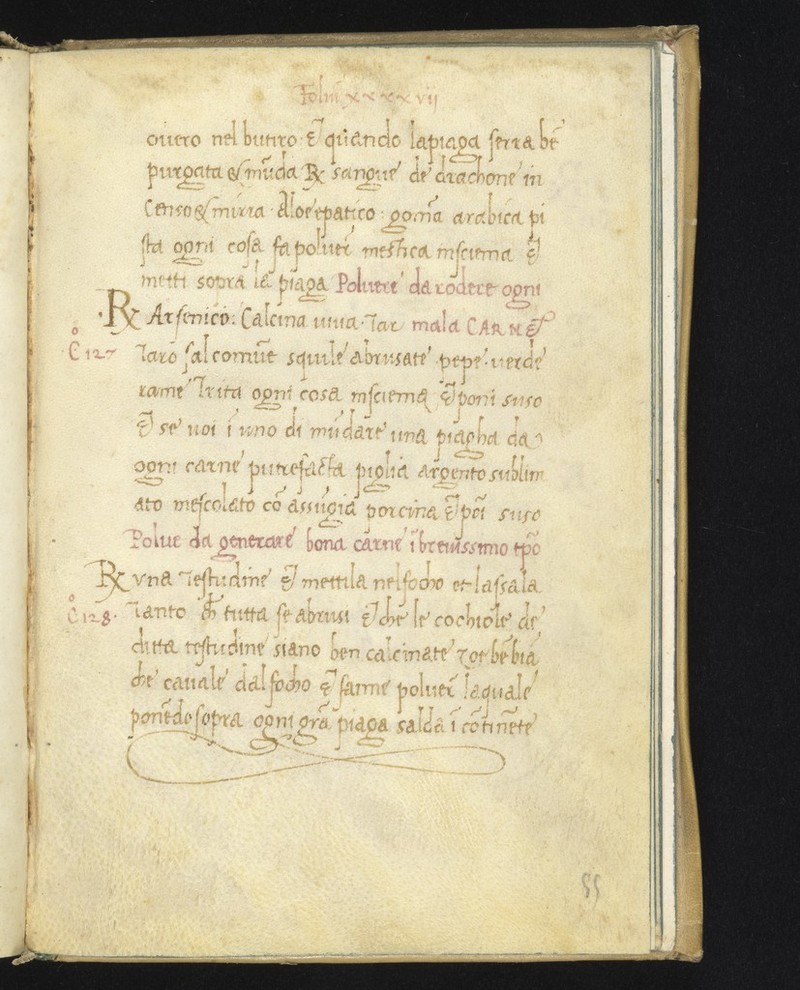 Foliũ xxxxvii
ouero nel butiro · & quando la piaga serra bẽ
purgata & mũda ℞ sangue de drachone in
censo & mirra · Aloe epatico : goma arabica pi
sta ogni cosa fa poluer̃ mestica insciema &
metti sopra la piaga Poluere da rodere ogni
℞ Arsenico : Calcina uiua · Tar mala CARNE
C̊ 127 Taro sal comũe squile abrusate · pepe · uerde
rame Trita ogni cosa insciema & poni suso
& se uoi ĩ uno di mũdare una piagha da
ogni carne putrefacta piglia argento sublim
ato mescolato cõ assũgia porcina & põi suso
Polue da generare bona carne ĩ breuissimo tp̃o
℞ vna Testudine & mettila nel focho et lassala
C̊ 128 · Tanto ch̃ tutta se abrusi & che le cochiole de
ditta testudine siano ben calcinate zoe bẽ biã
che cauale dal focho & fanne poluer̃ la quale
ponẽdo sopra ogni grã piaga salda ĩ cõtinẽte
55